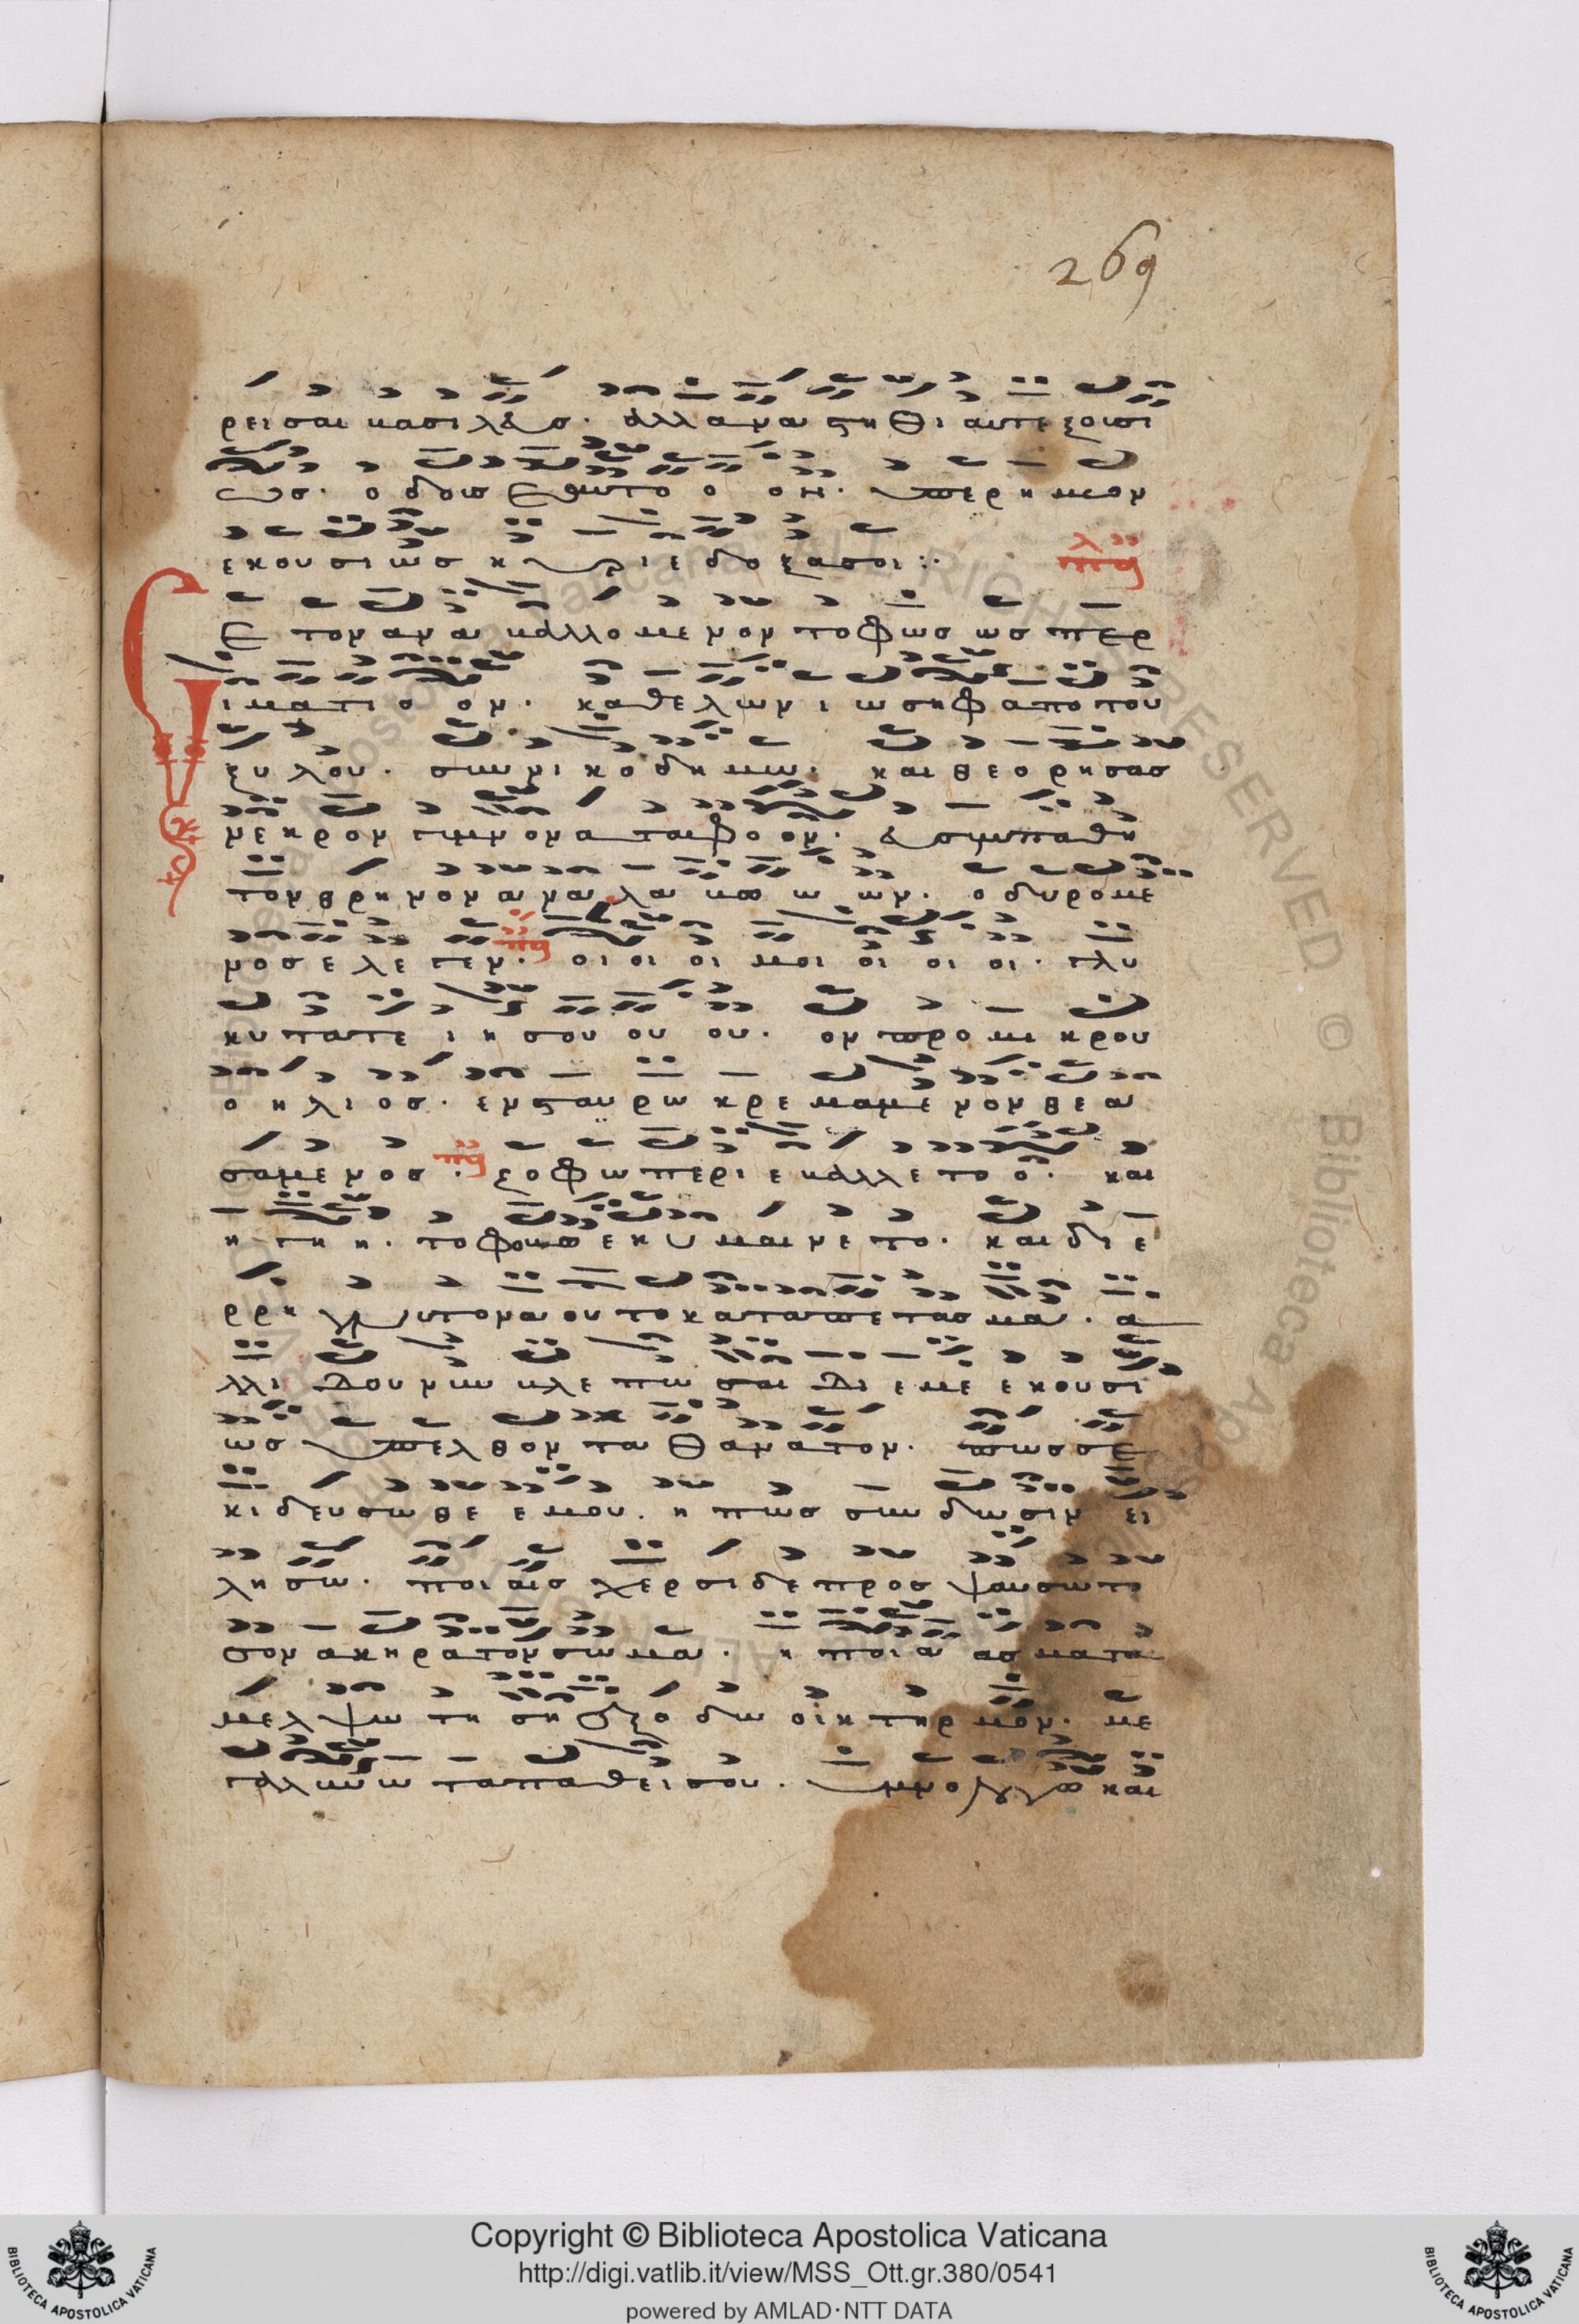 269
ρεισαι βασιλευσ. αλλα αναστηθι αυτεξουσι
ωσ. ο δους εαυτο ο ον. υπερ ημων
εκουσιωσ κυριε δοξα σοι :·
Σε τον αναβαλλομενον το φωσ ωσπερ
ιματιο ον. καθελων ιωσηφ απο του
ξυλου. συν νικοδημω. και θεορησασ
νεκρον γυμνον αταφο ον. ευσυμπαθη
τον θρηνον αναλαβω ω ων. οδυρομε
νοσ ελεγεν. οι οι οι μοι οι οι οι. γλυ
κυτατε ιησου ου ου. ον προ μικρου
ο ηλιοσ. εν σταυρω κρεμαμενον θεα
σαμενοσ. ζοφω περιεβαλλετο ο. και
η γη η. το φοβω εκυμαινετο. και διε
ρρηγνυτο ναου το καταπετασμα. α
λλ ιδου νυν βλεπω σαι δι εμε εκουσι
ωσ υπελθοντα θανατον. πωσ σε
κιδευσω θε εμου. η πωσ συνδωσιν ει
λησω. ποιαισ χερσι δε προσψαυσω το
σον ακηρατον σωμα. η ποια ασματα
μελψω τη ση εξοδω οικτηρμον. με
γαλυνω τα παθει σου. υμνολογω και
Copyright © Biblioteca Apostolica Vaticana
http://digi.vatlib.it/view/MSS_Ott.gr.380/0541
powered by AMLAD·NTT DATA
BIBLIOTECA APOSTOLICA VATICANA
BIBLIOTECA APOSTOLICA VATICANA